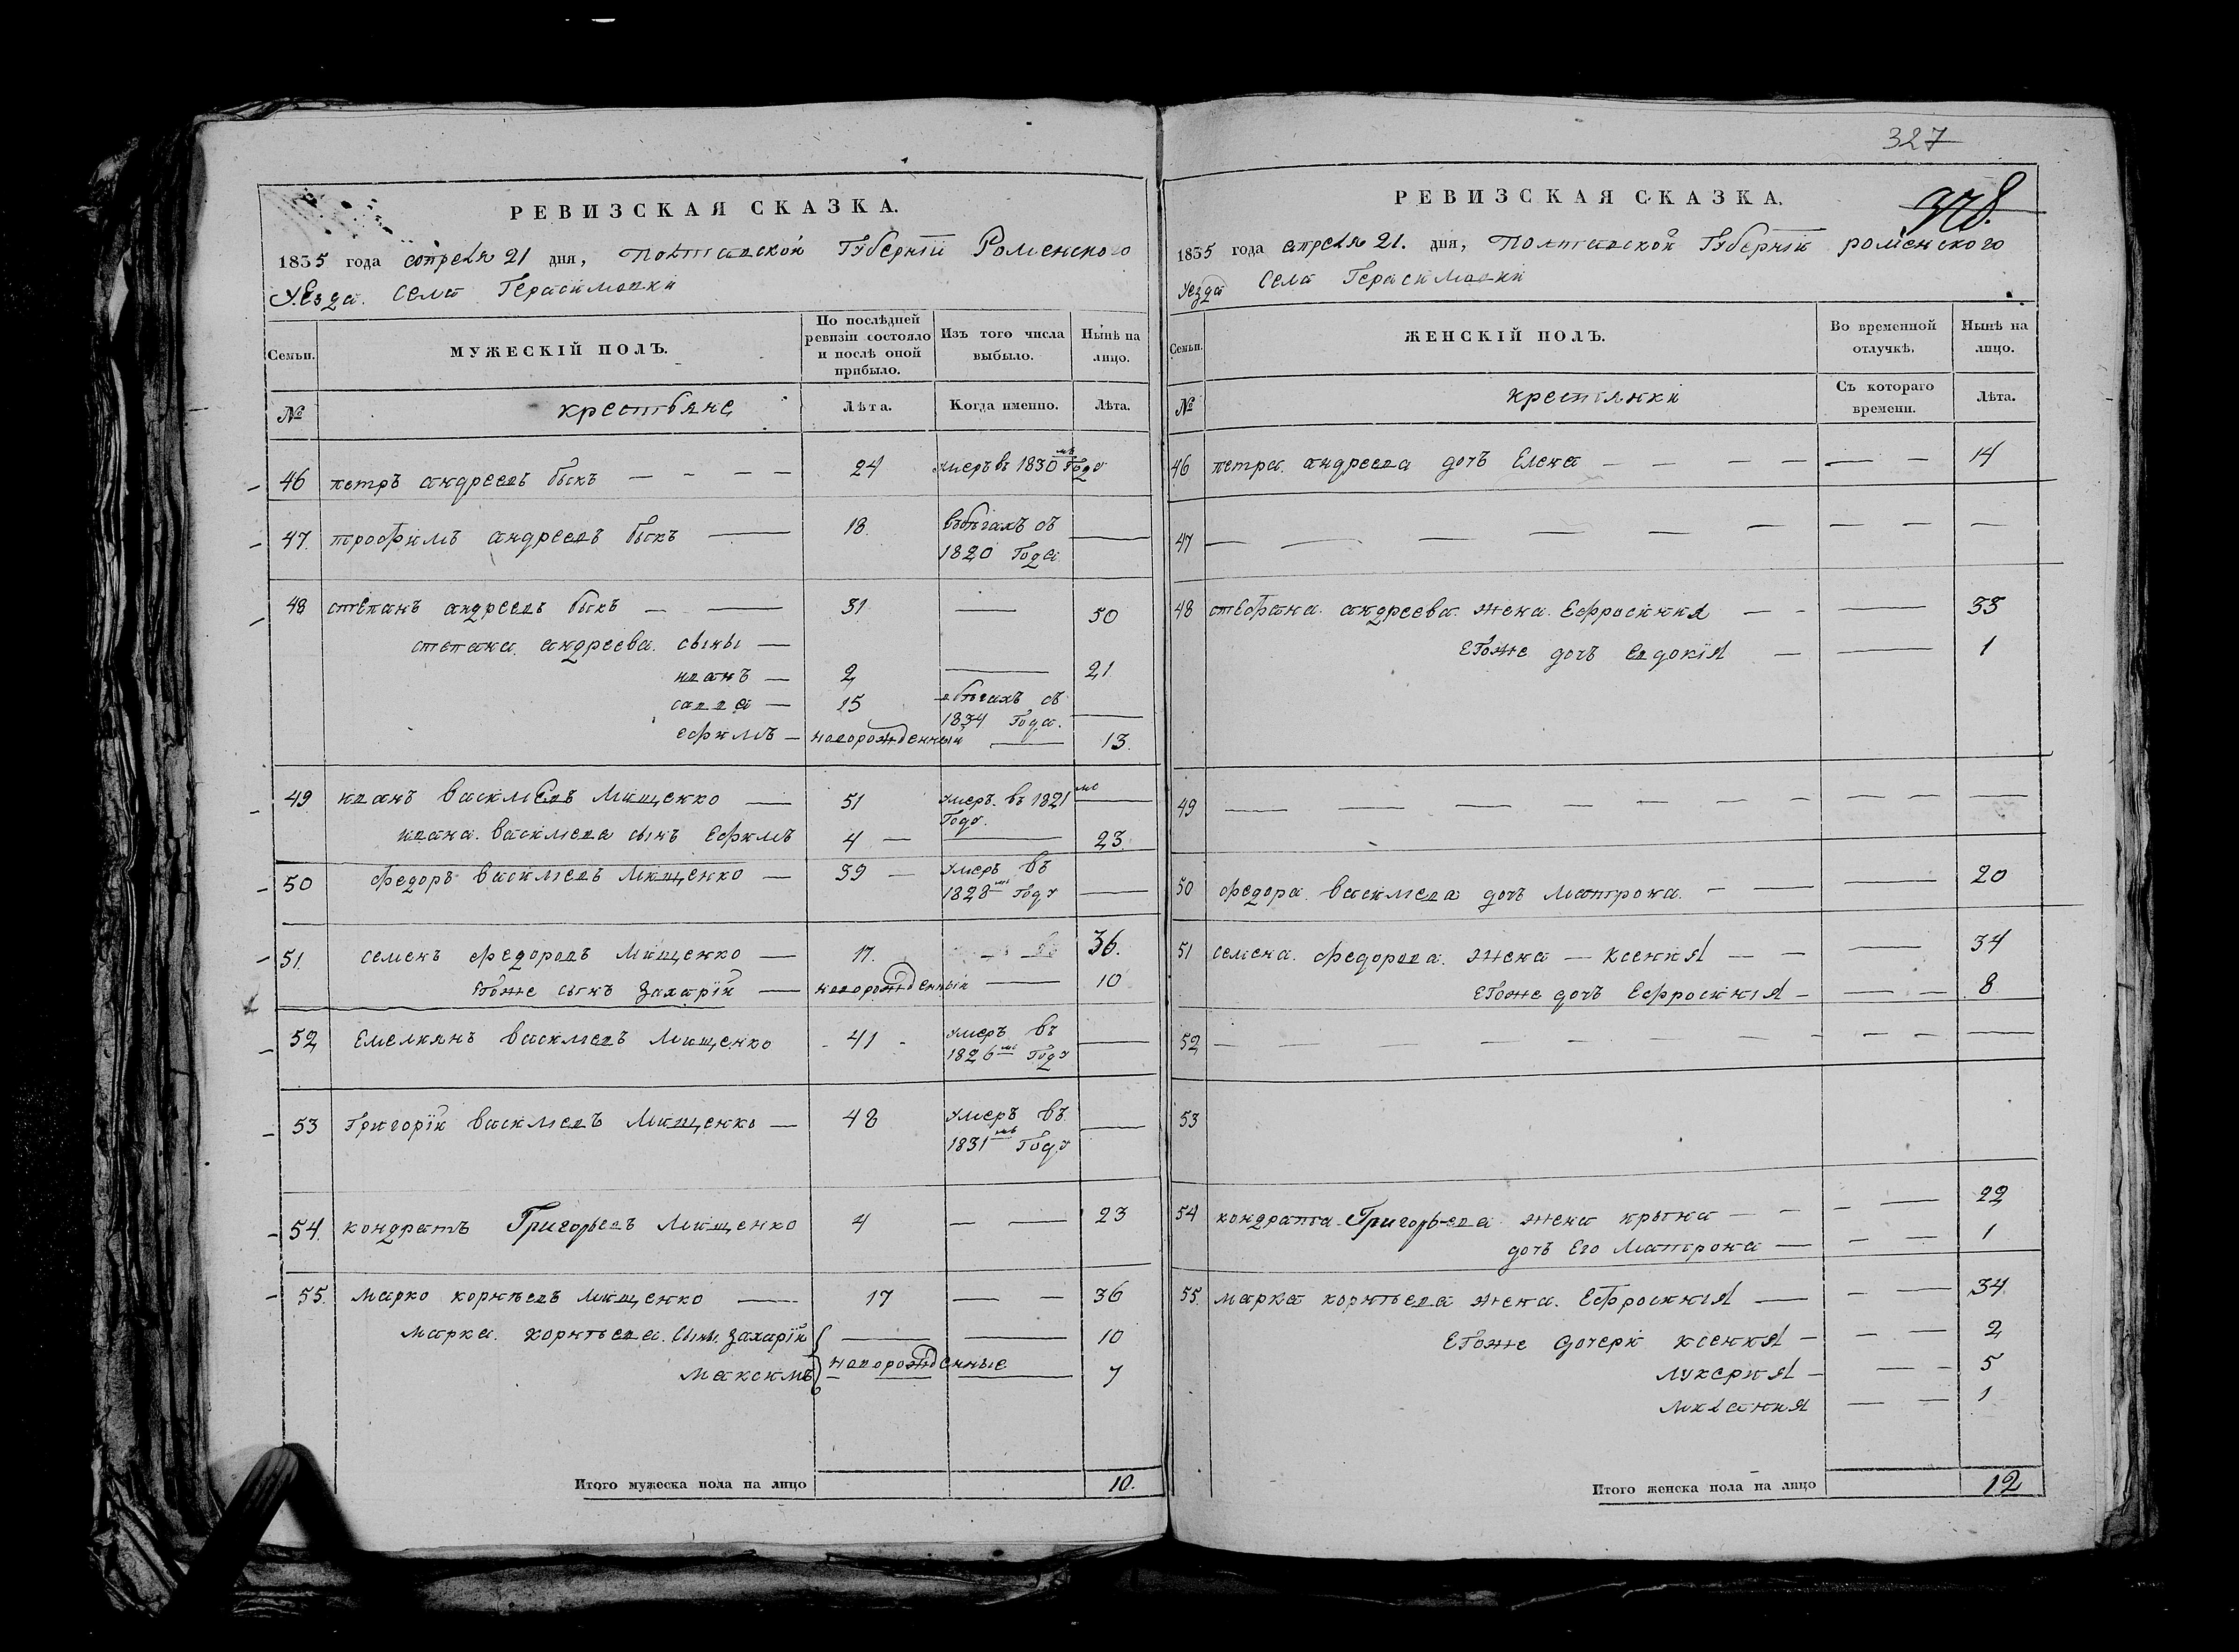 327
РЕВИЗСКАЯ СКАЗКА.
1835 года апреля 21 дня, Полтавской Губернии Роменского
Уезда. Села Герасимовки
Семьи.
МУЖЕСКІЙ ПОЛЪ.
По послѣдней ревизіи состояло и послѣ оной прибыло.
Изъ того числа выбыло.
Нынѣ на лицо.
№
крестьяне
Лѣта.
Когда именно.
Лѣта.
46 петръ андреевъ быкъ — — — — 24 умеръ въ 1830мъ Году
47. трофимъ андреевъ быкъ — 18. вбѣгахъ съ —
1820 Года
48 степанъ андреевъ быкъ — — 31 — 50
степана андреева сыны —
иванъ — 2 — 21
савва — 15 вбѣгахъ съ
1834 Года. —
ефимъ — новорожденный — 13.
49 иванъ василіевъ Мищенко — 51 умеръ въ 1821мъ —
Году.
ивана василіева сынъ Ефимъ 4 — — 23.
50 федоръ василіевъ Мищенко — 39 — умеръ въ
1828мъ Году —
51. семенъ федоровъ Мищенко — 17. 36.
Егоже сынъ Захарій — новорожденный — 10
52 Емелиянъ василіевъ Мищенко - 41 - умеръ въ —
1826мъ Году
53 Григорій василіевъ Мищенко — 48 умеръ въ —
1831мъ Году
54. кондратъ Григорьевъ Мищенко 4 — — 23
55. марко корнѣевъ Мищенко — 17 — — 36
марка корнѣева сыны Захарій — — 10
максимъ новорожденные — 7
Итого мужеска пола на лицо 10.
РЕВИЗСКАЯ СКАЗКА.
378.
1835 года апреля 21. дня, Полтавской Губерніи роменского
Уезда Села Герасимовки
Семьи.
ЖЕНСКІЙ ПОЛЪ.
Во временной отлучкѣ.
Нынѣ на лицо.
№
крестянки
Съ котораго времени.
Лѣта.
46 петра андреева дочъ Елена — — — — — — 14
47 — — — — — — — — —
48 стефана андреева жена Ефросиния — - — 33
Егоже дочъ евдокія — — 1
49 — — — — — — — — — — —
50 федора василіева дочъ матрона. — — — 20
51 семена федорова жена — ксения — — — 34
Егоже дочъ Ефросинія — — — 8
52 — — — — — — — — —
53
54 кондрата Григорьева жена ирина — — — — 22
дочъ Его Матрона — — — 1
55. марка корнѣева жена Ефросинія — — — 34
Егоже дочери ксения — — — 2
лукерия — — — 5
мелания — — 1
Итого женска пола на лицо 12